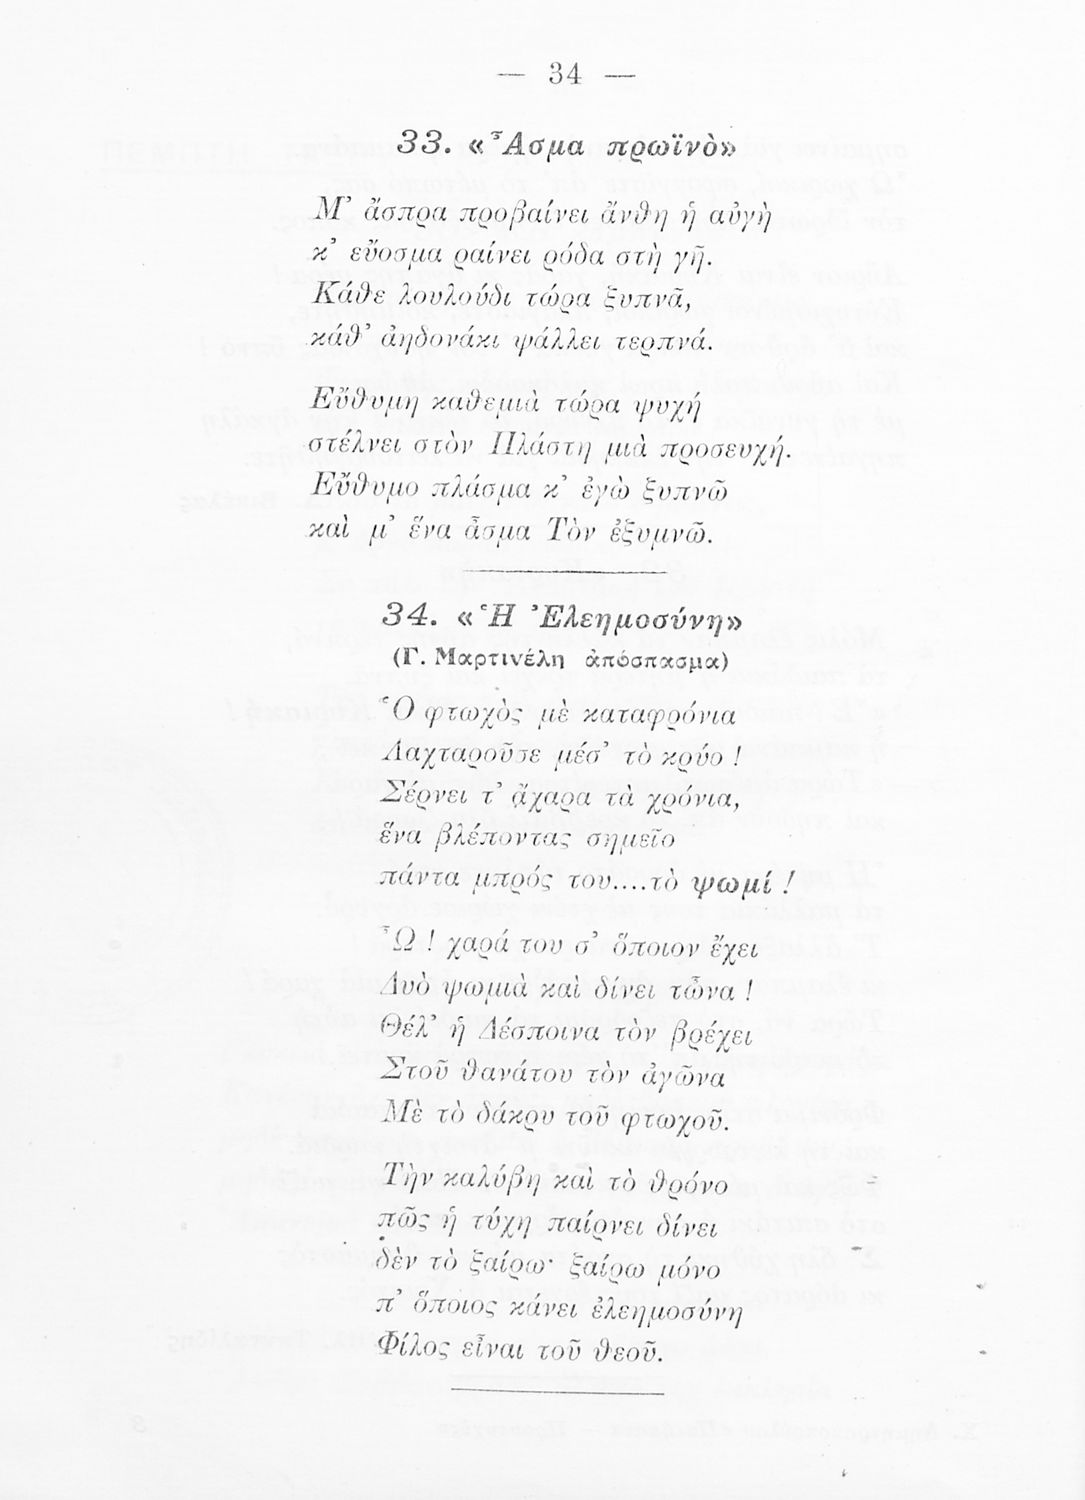 — 34 —
33. «Ἆσμα πρωϊνὸ»
Μ' ἄσπρα προβαίνει ἄνθη ἡ αὐγὴ
κ' εὔοσμα ραίνει ρόδα στὴ γῆ.
Κάθε λουλούδι τώρα ξυπνᾶ,
κάθ' ἀηδονάκι ψάλλει τερπνά.
Εὔθυμη καθεμιὰ τώρα ψυχή
στέλνει στὸν Πλάστη μιὰ προσευχή.
Εὔθυμο πλάσμα κ' ἐγὼ ξυπνῶ
καὶ μ' ἕνα ἆσμα Τὸν ἐξυμνῶ.
34. «Ἡ Ἐλεημοσύνη»
(Γ. Μαρτινέλη ἀπόσπασμα)
Ὁ φτωχὸς μὲ καταφρόνια
Λαχταροῦσε μέσ' τὸ κρύο !
Σέρνει τ' ἄχαρα τὰ χρόνια,
ἕνα βλέποντας σημεῖο
πάντα μπρός του....τὸ ψωμί !
Ὦ ! χαρά του σ' ὅποιον ἔχει
Δυὸ ψωμιὰ καὶ δίνει τὦνα !
Θέλ' ἡ Δέσποινα τὸν βρέχει
Στοῦ θανάτου τὸν ἀγῶνα
Μὲ τὸ δάκρυ τοῦ φτωχοῦ.
Τὴν καλύβη καὶ τὸ θρόνο
πῶς ἡ τύχη παίρνει δίνει
δὲν τὸ ξαίρω· ξαίρω μόνο
π' ὅποιος κάνει ἐλεημοσύνη
Φίλος εἶναι τοῦ θεοῦ.